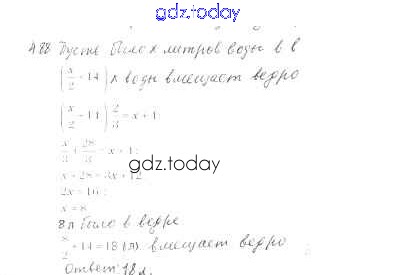 gdz.today
488 Пусть было x литров воды в в
(x/2 + 14) л воды вмещает ведро
(x/2 + 14) 2/3 = x + 1;
x/3 + 28/3 = x + 1;
gdz.today
x + 28 = 3x + 12
2x = 16;
x = 8
8 л было в ведре
8/2 + 14 = 18 (л) вмещает ведро
gdz.today
Ответ: 18 л.